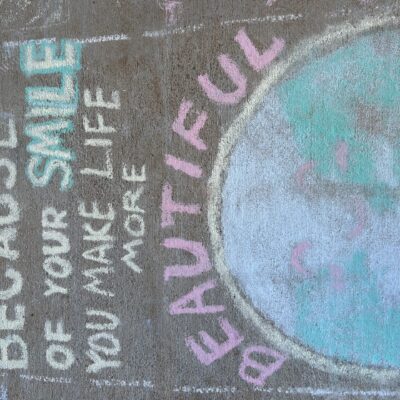 BECAUSE
OF YOUR SMILE
YOU MAKE LIFE
MORE
BEAUTIFUL